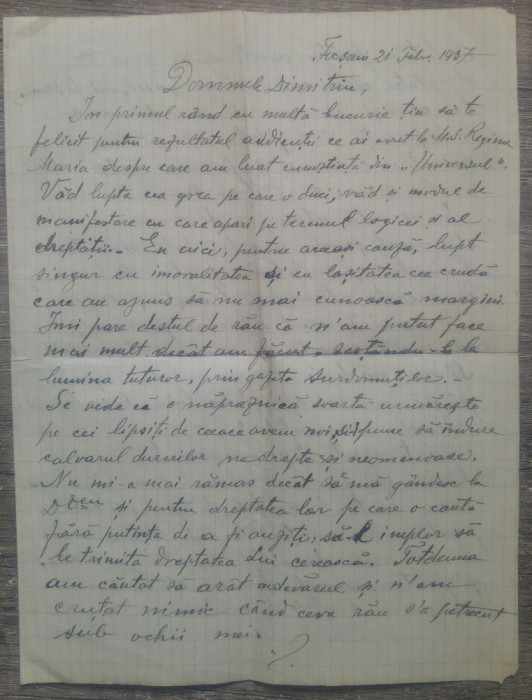 Focșani 21 Febr. 1937
Domnule Dimitriu,
In primul rând cu multă bucurie țin să te
felicit pentru rezultatul audienței ce ai avut la M.S. Regina
Maria despre care am luat cunoștință din „Universul".
Văd lupta cea grea pe care o duci, văd și modul de
manifestare cu care apari pe terenul logicei și al
dreptății. - Eu aici, pentru aceeași cauză, lupt
singur cu imoralitatea și cu lașitatea cea crudă
care au ajuns să nu mai cunoască margini.
Imi pare destul de rău că n'am putut face
mai mult decât am făcut, scoțându-le la
lumina tuturor, prin gazeta surdomuților. -
Se vede că o năpraznică soartă urmărește
pe cei lipsiți de ceeace avem noi, să îndure
calvarul durerilor nedrepte și neomenoase.
Nu mi-a mai rămas decât să mă gândesc la
și pentru dreptatea lor pe care o caută
fără putința de a fi auziți, să-L implor să
le trimită dreptatea Lui cerească. Totdeuna
am căutat să arăt adevărul și n'am
cruțat nimic când ceva rău s'a petrecut
sub ochii mei.